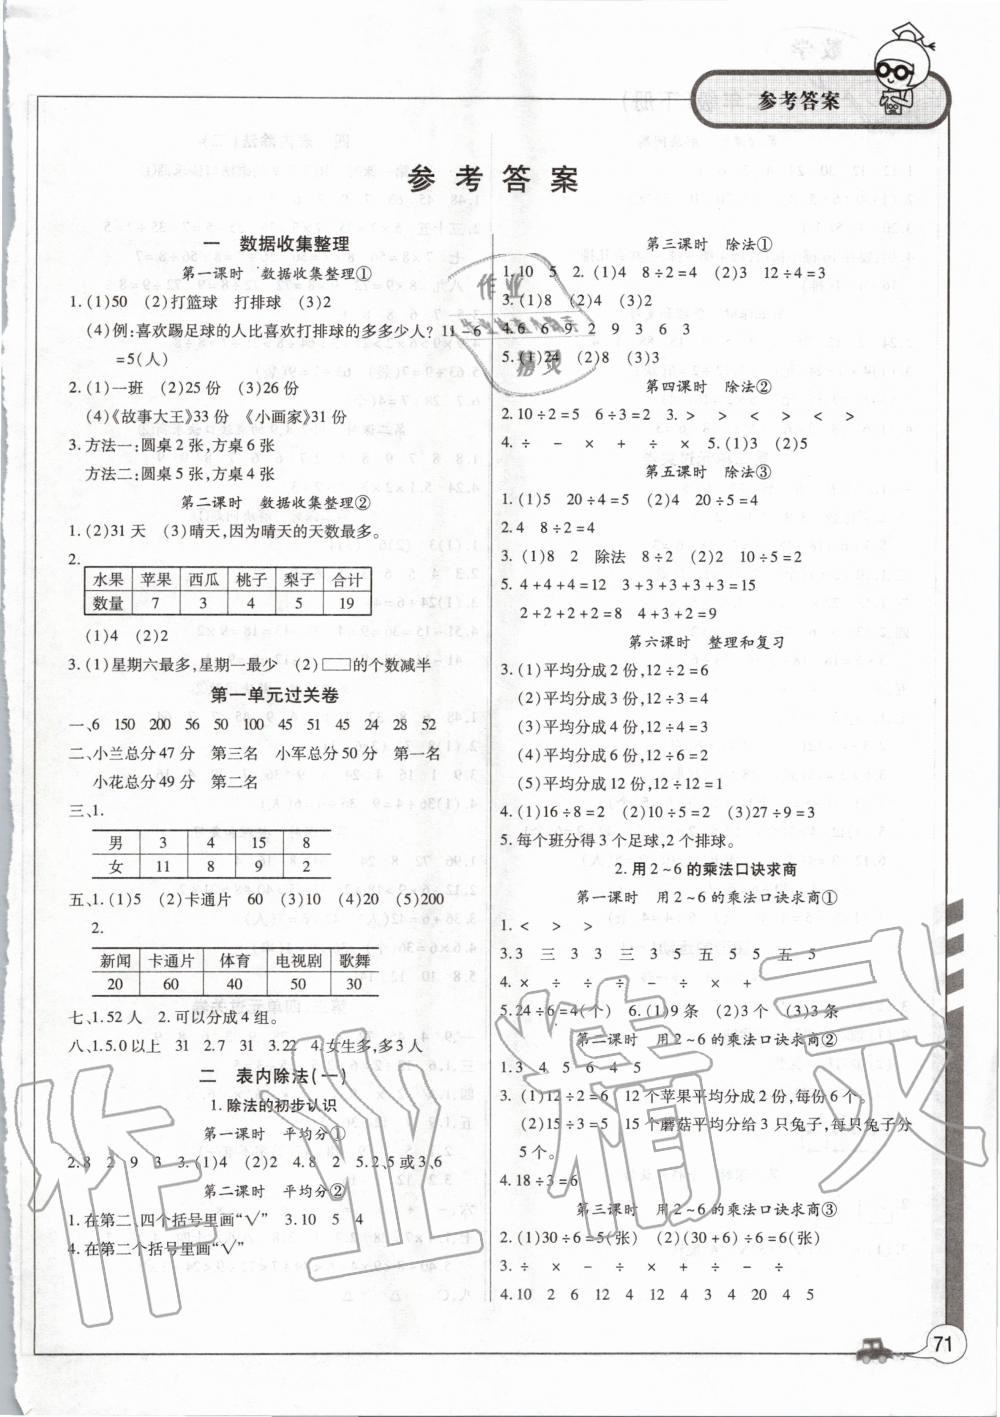 参考答案
参考答案
一 数据收集整理
第一课时 数据收集整理①
1.(1)50 (2)打篮球 打排球 (3)2
(4)例:喜欢踢足球的人比喜欢打排球的多多少人? 11-6
=5(人)
2.(1)一班 (2)25份 (3)26份
(4)《故事大王》33份 《小画家》31份
3.方法一:圆桌2张,方桌6张
方法二:圆桌5张,方桌4张
第二课时 数据收集整理②
1.(2)31天 (3)晴天,因为晴天的天数最多。
2.
水果 苹果 西瓜 桃子 梨子 合计
数量 7 3 4 5 19
(1)4 (2)2
3.(1)星期六最多,星期一最少 (2)▭的个数减半
第一单元过关卷
一、6 150 200 56 50 100 45 51 45 24 28 52
二、小兰总分47分 第三名 小军总分50分 第一名
小花总分49分 第二名
三、1.
男 3 4 15 8
女 11 8 9 2
五、1.(1)5 (2)卡通片 60 (3)10 (4)20 (5)200
2.
新闻 卡通片 体育 电视剧 歌舞
20 60 40 50 30
七、1.52人 2.可以分成4组。
八、1.5.0以上 31 2.7 31 3.22 4.女生多,多3人
二 表内除法(一)
1.除法的初步认识
第一课时 平均分①
2.8 2 9 3 3.(1)4 (2)2 4.8 2 5.2、5或3、6
第二课时 平均分②
1.在第二、四个括号里画“√” 3.10 5 4
4.在第二个括号里画“√”
第三课时 除法①
1.10 5 2.(1)4 8÷2=4 (2)3 12÷4=3
3.(1)8 (2)4 (3)4
4.6 6 9 2 9 3 6 3
5.(1)24 (2)8 (3)3
第四课时 除法②
2.10÷2=5 6÷3=2 3.> > < > < >
4.÷ - × + ÷ + 5.(1)3 (2)5
第五课时 除法③
1.(1)5 20÷4=5 (2)4 20÷5=4
2.4 8÷2=4
3.(1)8 2 除法 8÷2 (2)2 10÷5=2
5.4+4+4=12 3+3+3+3+3=15
2+2+2+2=8 4+3+2=9
第六课时 整理和复习
3.(1)平均分成2份,12÷2=6
(2)平均分成3份,12÷3=4
(3)平均分成4份,12÷4=3
(4)平均分成6份,12÷6=2
(5)平均分成12份,12÷12=1
4.(1)16÷8=2 (2)10÷5=2 (3)27÷9=3
5.每个班分得3个足球,2个排球。
2.用2~6的乘法口诀求商
第一课时 用2~6的乘法口诀求商①
1.< > >
3.3 三 3 三 3 5 五 5 5 五 5
4.× ÷ ÷ ÷ - ÷ ÷ ÷
5.24÷6=4(个) 6.(1)9条 (2)3个 (3)3条
第二课时 用2~6的乘法口诀求商②
1.3 4 5 6 4 5
3.(1)12÷2=6 12个苹果平均分成2份,每份6个。
(2)15÷3=5 15个蘑菇平均分给3只兔子,每只兔子分
5个。
4.18÷3=6
第三课时 用2~6的乘法口诀求商③
2.(1)30÷6=5(张) (2)(30+6)÷6=6(张)
3.÷ × - ÷ × + - ÷ -
4.10 2 6 12 4 12 2 20 4 5
71
作业精灵